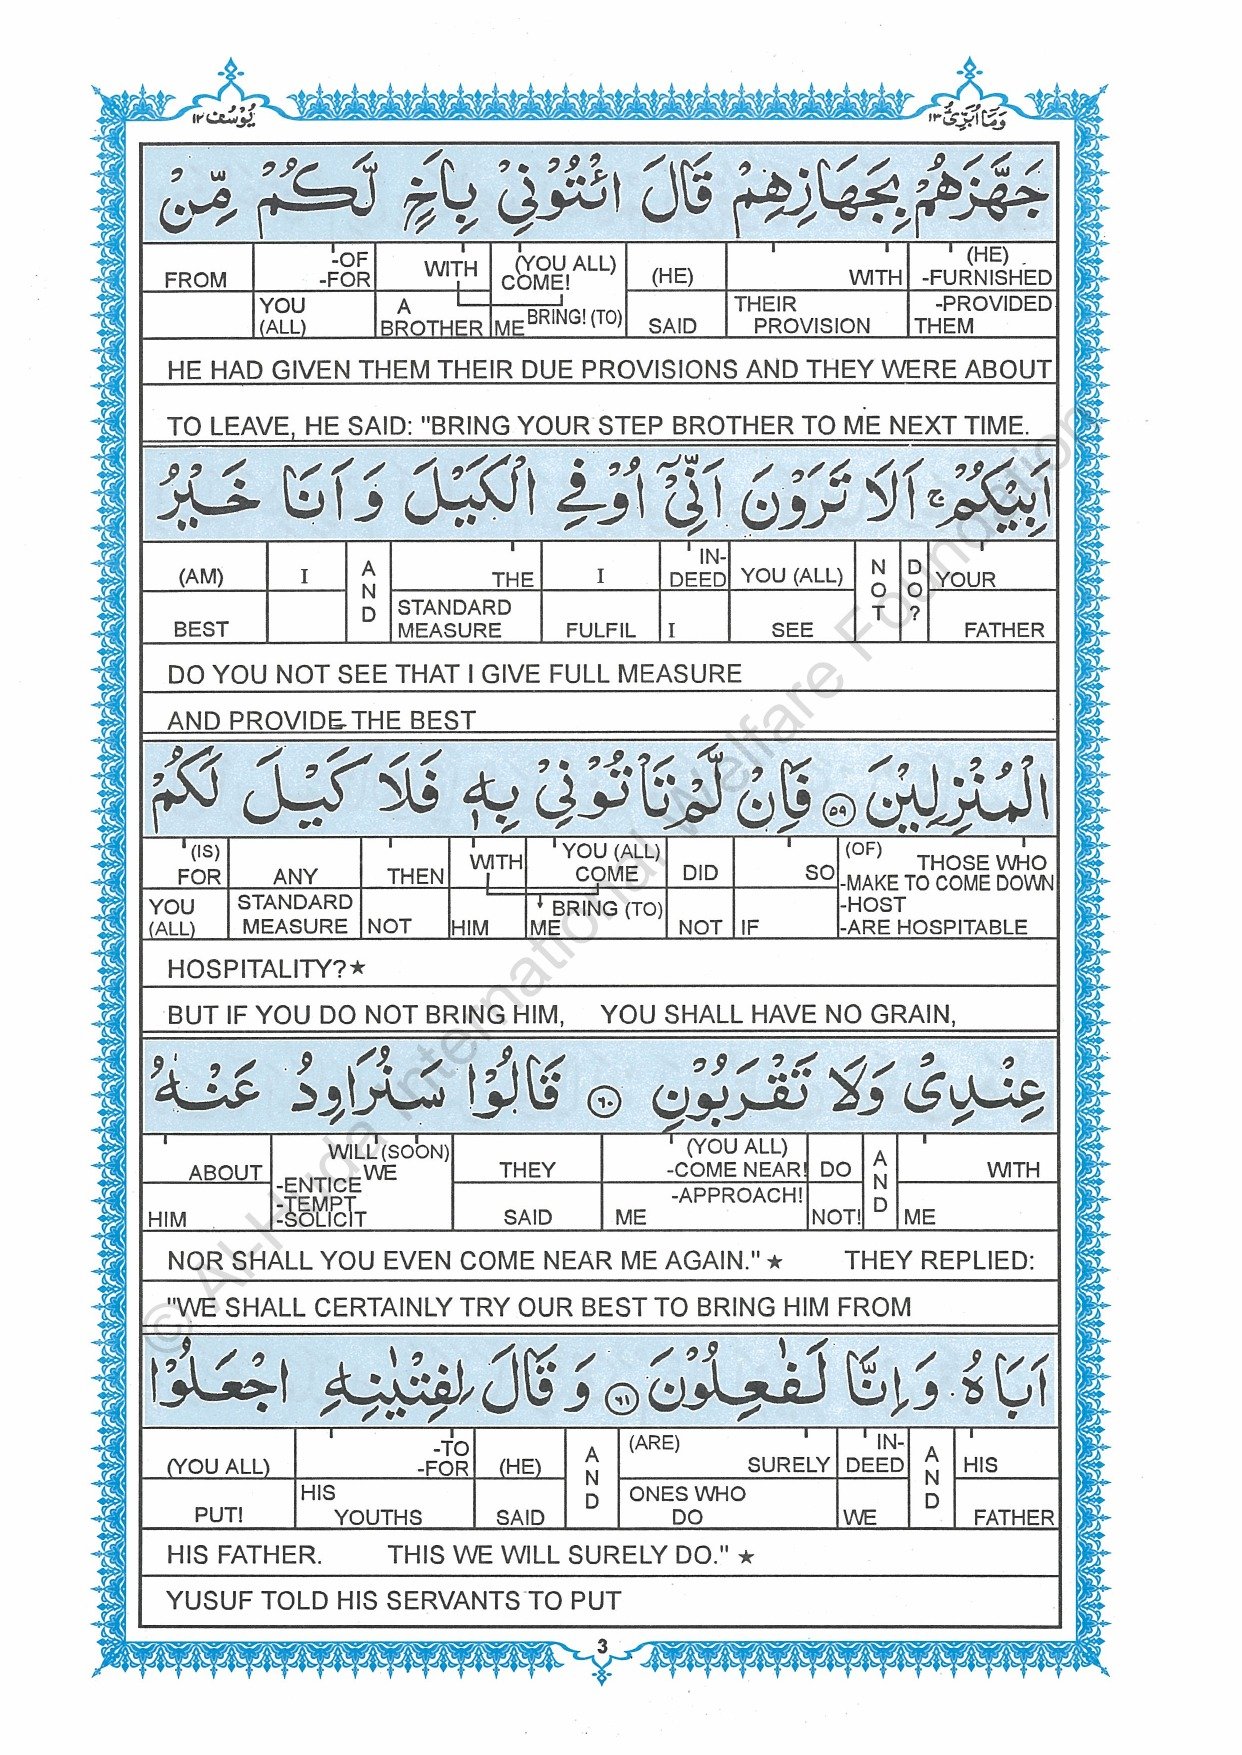 وَمَآ اُبَرِّئُ ١٣
يُوْسُف ١٢
جَهَّزَهُمْ بِجَهَازِهِمْ قَالَ ائْتُوْنِيْ بِاَخٍ لَّكُمْ مِّنْ
FROM -OF -FOR WITH (YOU ALL) COME! (HE) WITH (HE) -FURNISHED
YOU (ALL) A BROTHER ME BRING! (TO) SAID THEIR PROVISION -PROVIDED THEM
HE HAD GIVEN THEM THEIR DUE PROVISIONS AND THEY WERE ABOUT
TO LEAVE, HE SAID: "BRING YOUR STEP BROTHER TO ME NEXT TIME.
اَبِيْكُمْ ۚ اَلَا تَرَوْنَ اَنِّيْٓ اُوْفِي الْكَيْلَ وَ اَنَا خَيْرُ
(AM) I AND THE I IN-DEED YOU (ALL) NOT DO? YOUR
BEST STANDARD MEASURE FULFIL I SEE FATHER
DO YOU NOT SEE THAT I GIVE FULL MEASURE
AND PROVIDE THE BEST
الْمُنْزِلِيْنَ ٥٩ فَاِنْ لَّمْ تَاْتُوْنِيْ بِهٖ فَلَا كَيْلَ لَكُمْ
(IS) FOR ANY THEN WITH YOU (ALL) COME DID SO (OF) THOSE WHO -MAKE TO COME DOWN
YOU (ALL) STANDARD MEASURE NOT HIM ME BRING (TO) NOT IF -HOST -ARE HOSPITABLE
HOSPITALITY?★
BUT IF YOU DO NOT BRING HIM, YOU SHALL HAVE NO GRAIN,
عِنْدِيْ وَلَا تَقْرَبُوْنِ ٦٠ قَالُوْا سَنُرَاوِدُ عَنْهُ
ABOUT WILL (SOON) WE THEY (YOU ALL) -COME NEAR! DO AND WITH
HIM -ENTICE -TEMPT -SOLICIT SAID ME -APPROACH! NOT! ME
NOR SHALL YOU EVEN COME NEAR ME AGAIN." ★ THEY REPLIED:
"WE SHALL CERTAINLY TRY OUR BEST TO BRING HIM FROM
اَبَاهُ وَاِنَّا لَفٰعِلُوْنَ ٦١ وَ قَالَ لِفِتْيٰنِهِ اجْعَلُوْا
(YOU ALL) -TO -FOR (HE) AND (ARE) SURELY IN-DEED AND HIS
PUT! HIS YOUTHS SAID ONES WHO DO WE FATHER
HIS FATHER. THIS WE WILL SURELY DO." ★
YUSUF TOLD HIS SERVANTS TO PUT
3
© Al-Huda International Welfare Foundation